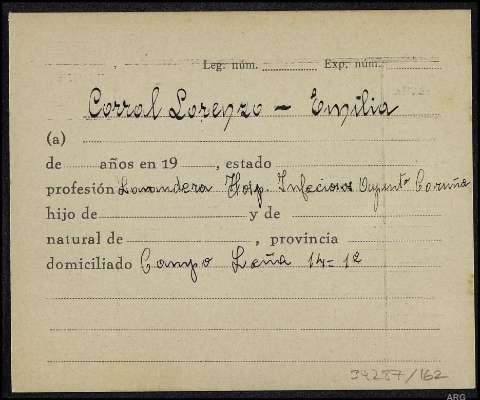 Leg. núm. Exp. núm.
Corral Lorenzo - Emilia
(a)
de años en 19 , estado
profesión Lavandera Hosp. Infeciosos Ayunto Coruña
hijo de y de
natural de , provincia
domiciliado Campo Leña 14-1º
34287/162
ARG